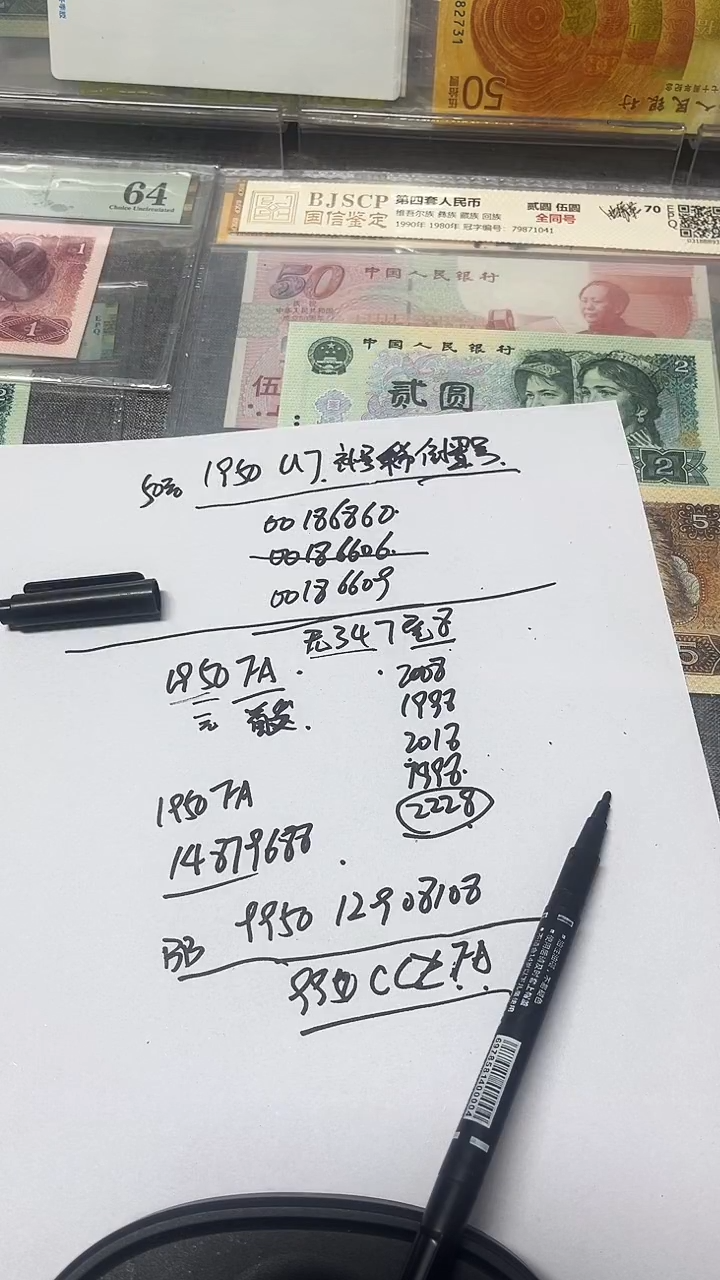 82731
50
伍拾圆
中国人民银行
64
Choice Uncirculated
BJSCP
国信鉴定
第四套人民币
维吾尔族 彝族 藏族 回族
1990年 1980年 冠字编号: 79871041
贰圆 伍圆
全同号
70
EPQ
1
1
50
中国人民银行
伍
中国人民银行
贰圆
2
2
5
5
50元 1950 UJ 补号 稀 倒置号
00186860
00186606
00186609
无347 尾8
1950 FA
2008
1998
2018
1998
2228
1950 FA
14879688
BB 9950 12908108
6978581400004